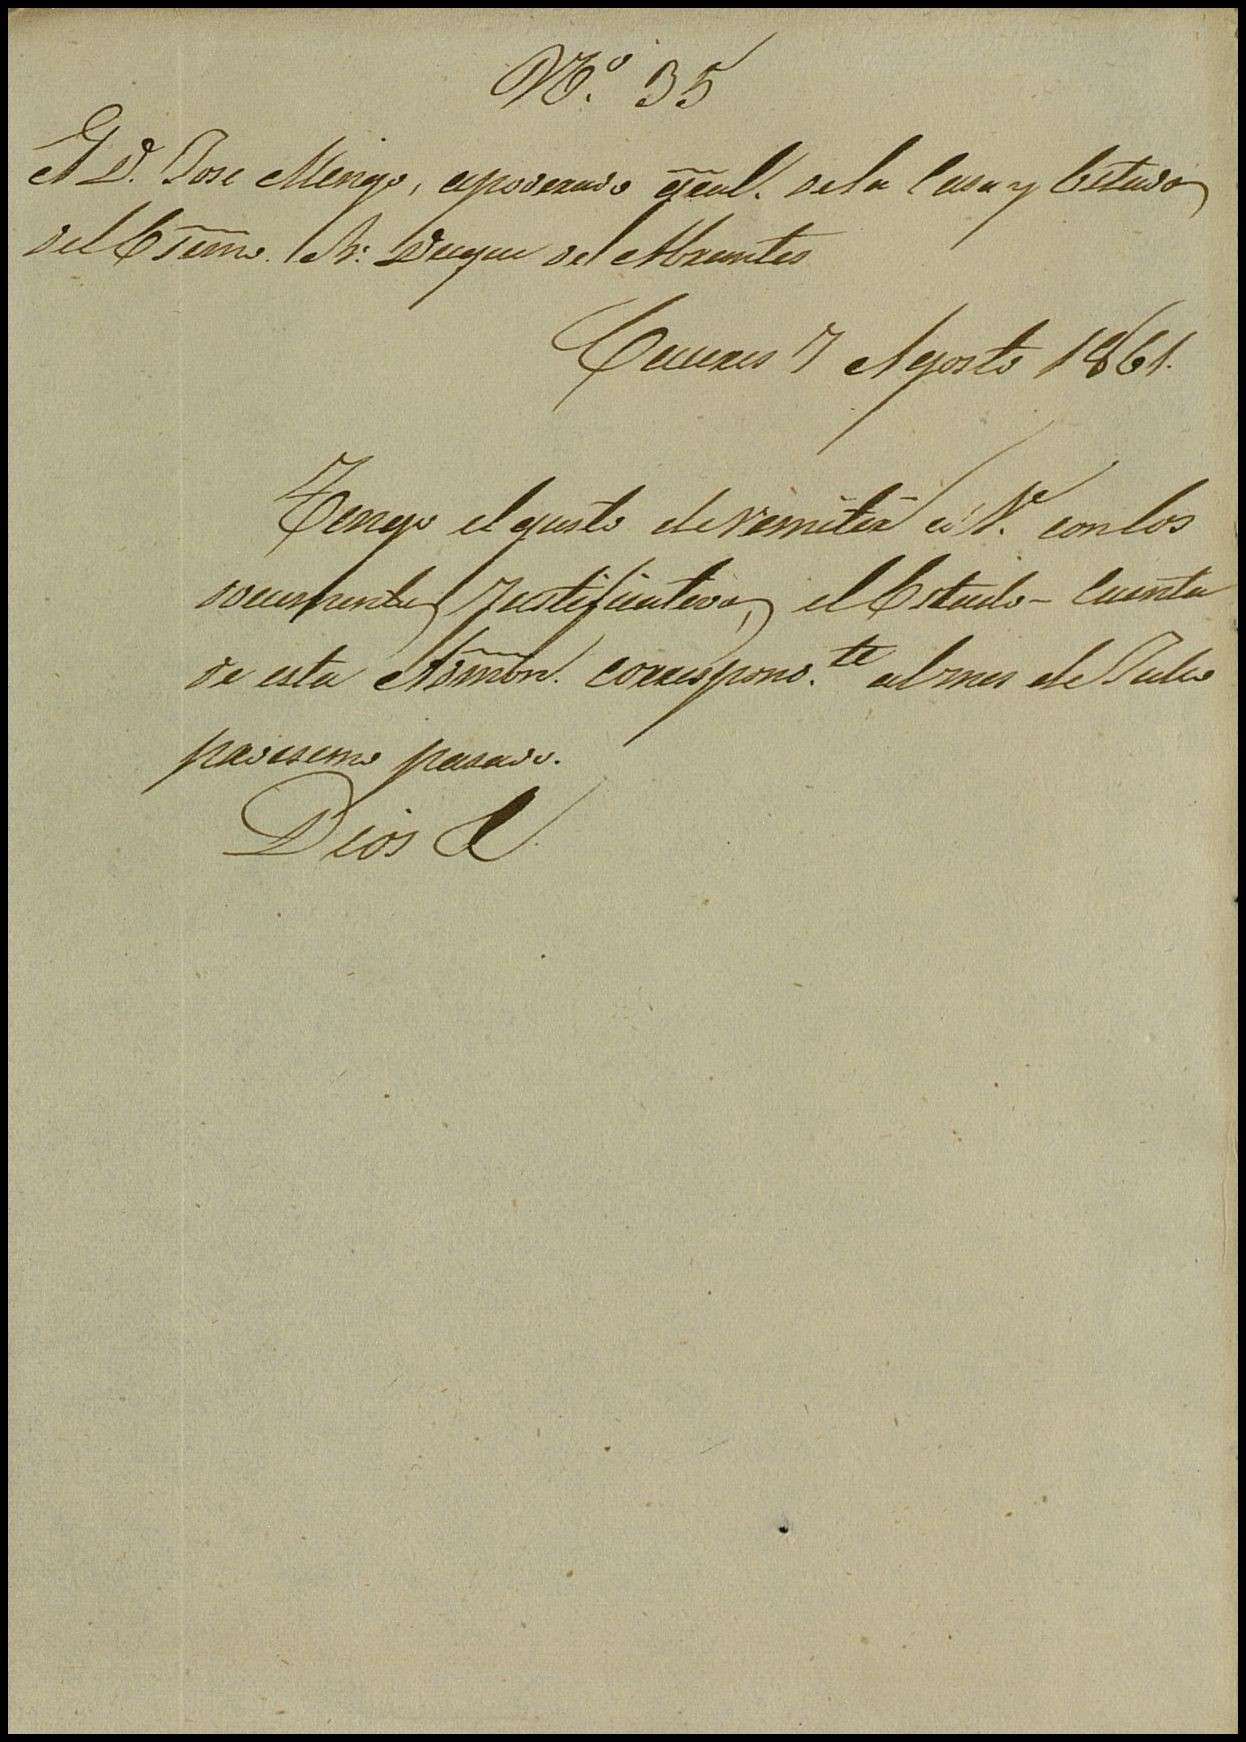 Nº. 35
A D. Jose Mengo, apoderado gral. de la Casa y Estados
del Esmo. Sr. Duque de Abrantes
Caceres 7 Agosto 1861.
Tengo el gusto de remitir á Vᵉ. con los
documentos justificativos, el Estado-Cuenta
de esta Admon. correspond.te al mes de Julio
procsimo pasado.
Dios &